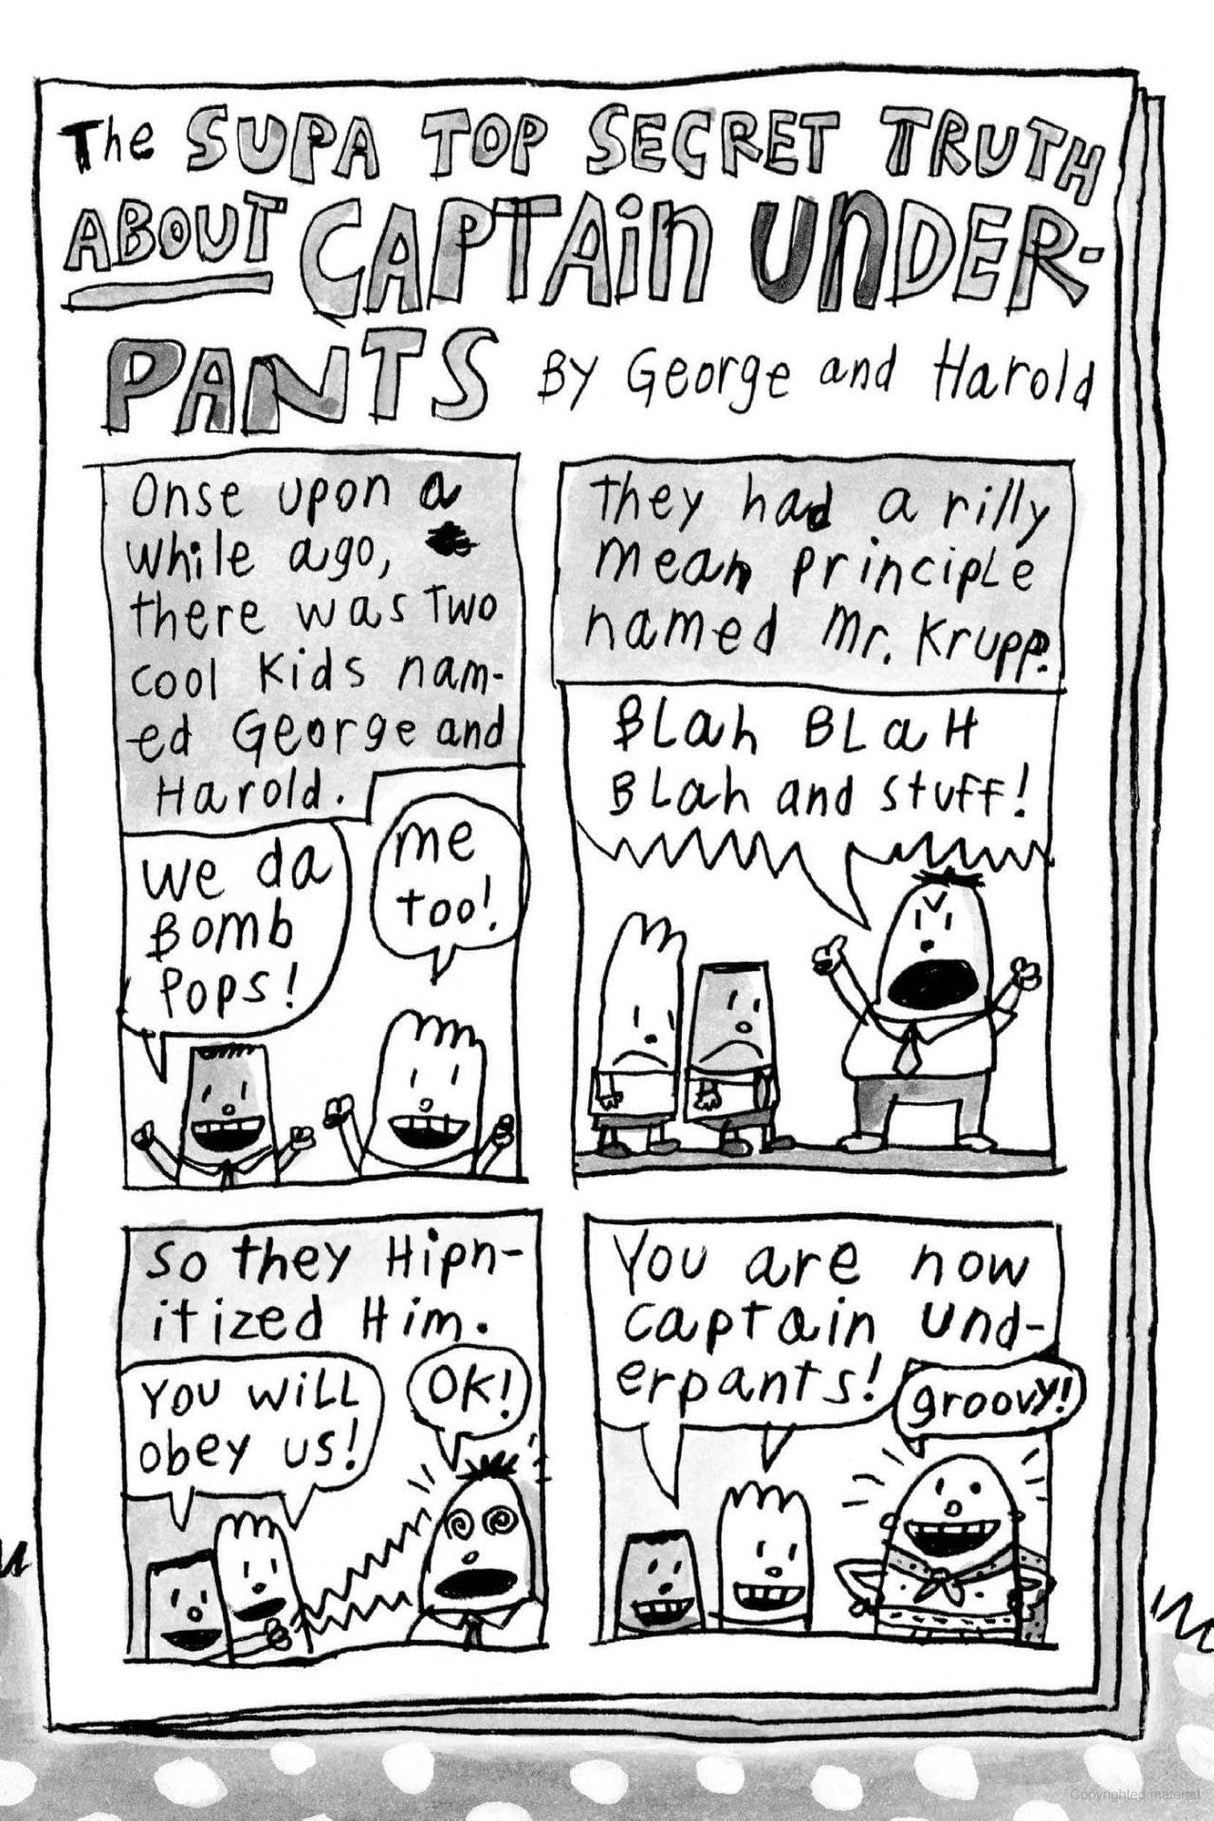 The SUPA TOP SECRET TRUTH
ABOUT CAPTAiN UNDER-
PANTS BY George and Harold
Onse upon a
while ago,
there was Two
cool Kids nam-
ed George and
Harold.
we da
Bomb
Pops!
me
too!
They had a rilly
mean principle
named Mr. Krupp.
BLah BLaH
BLah and stuff!
So they Hipn-
itized Him.
You will
obey us!
OK!
You are now
captain Und-
erpants!
groovy!
Copyrighted material